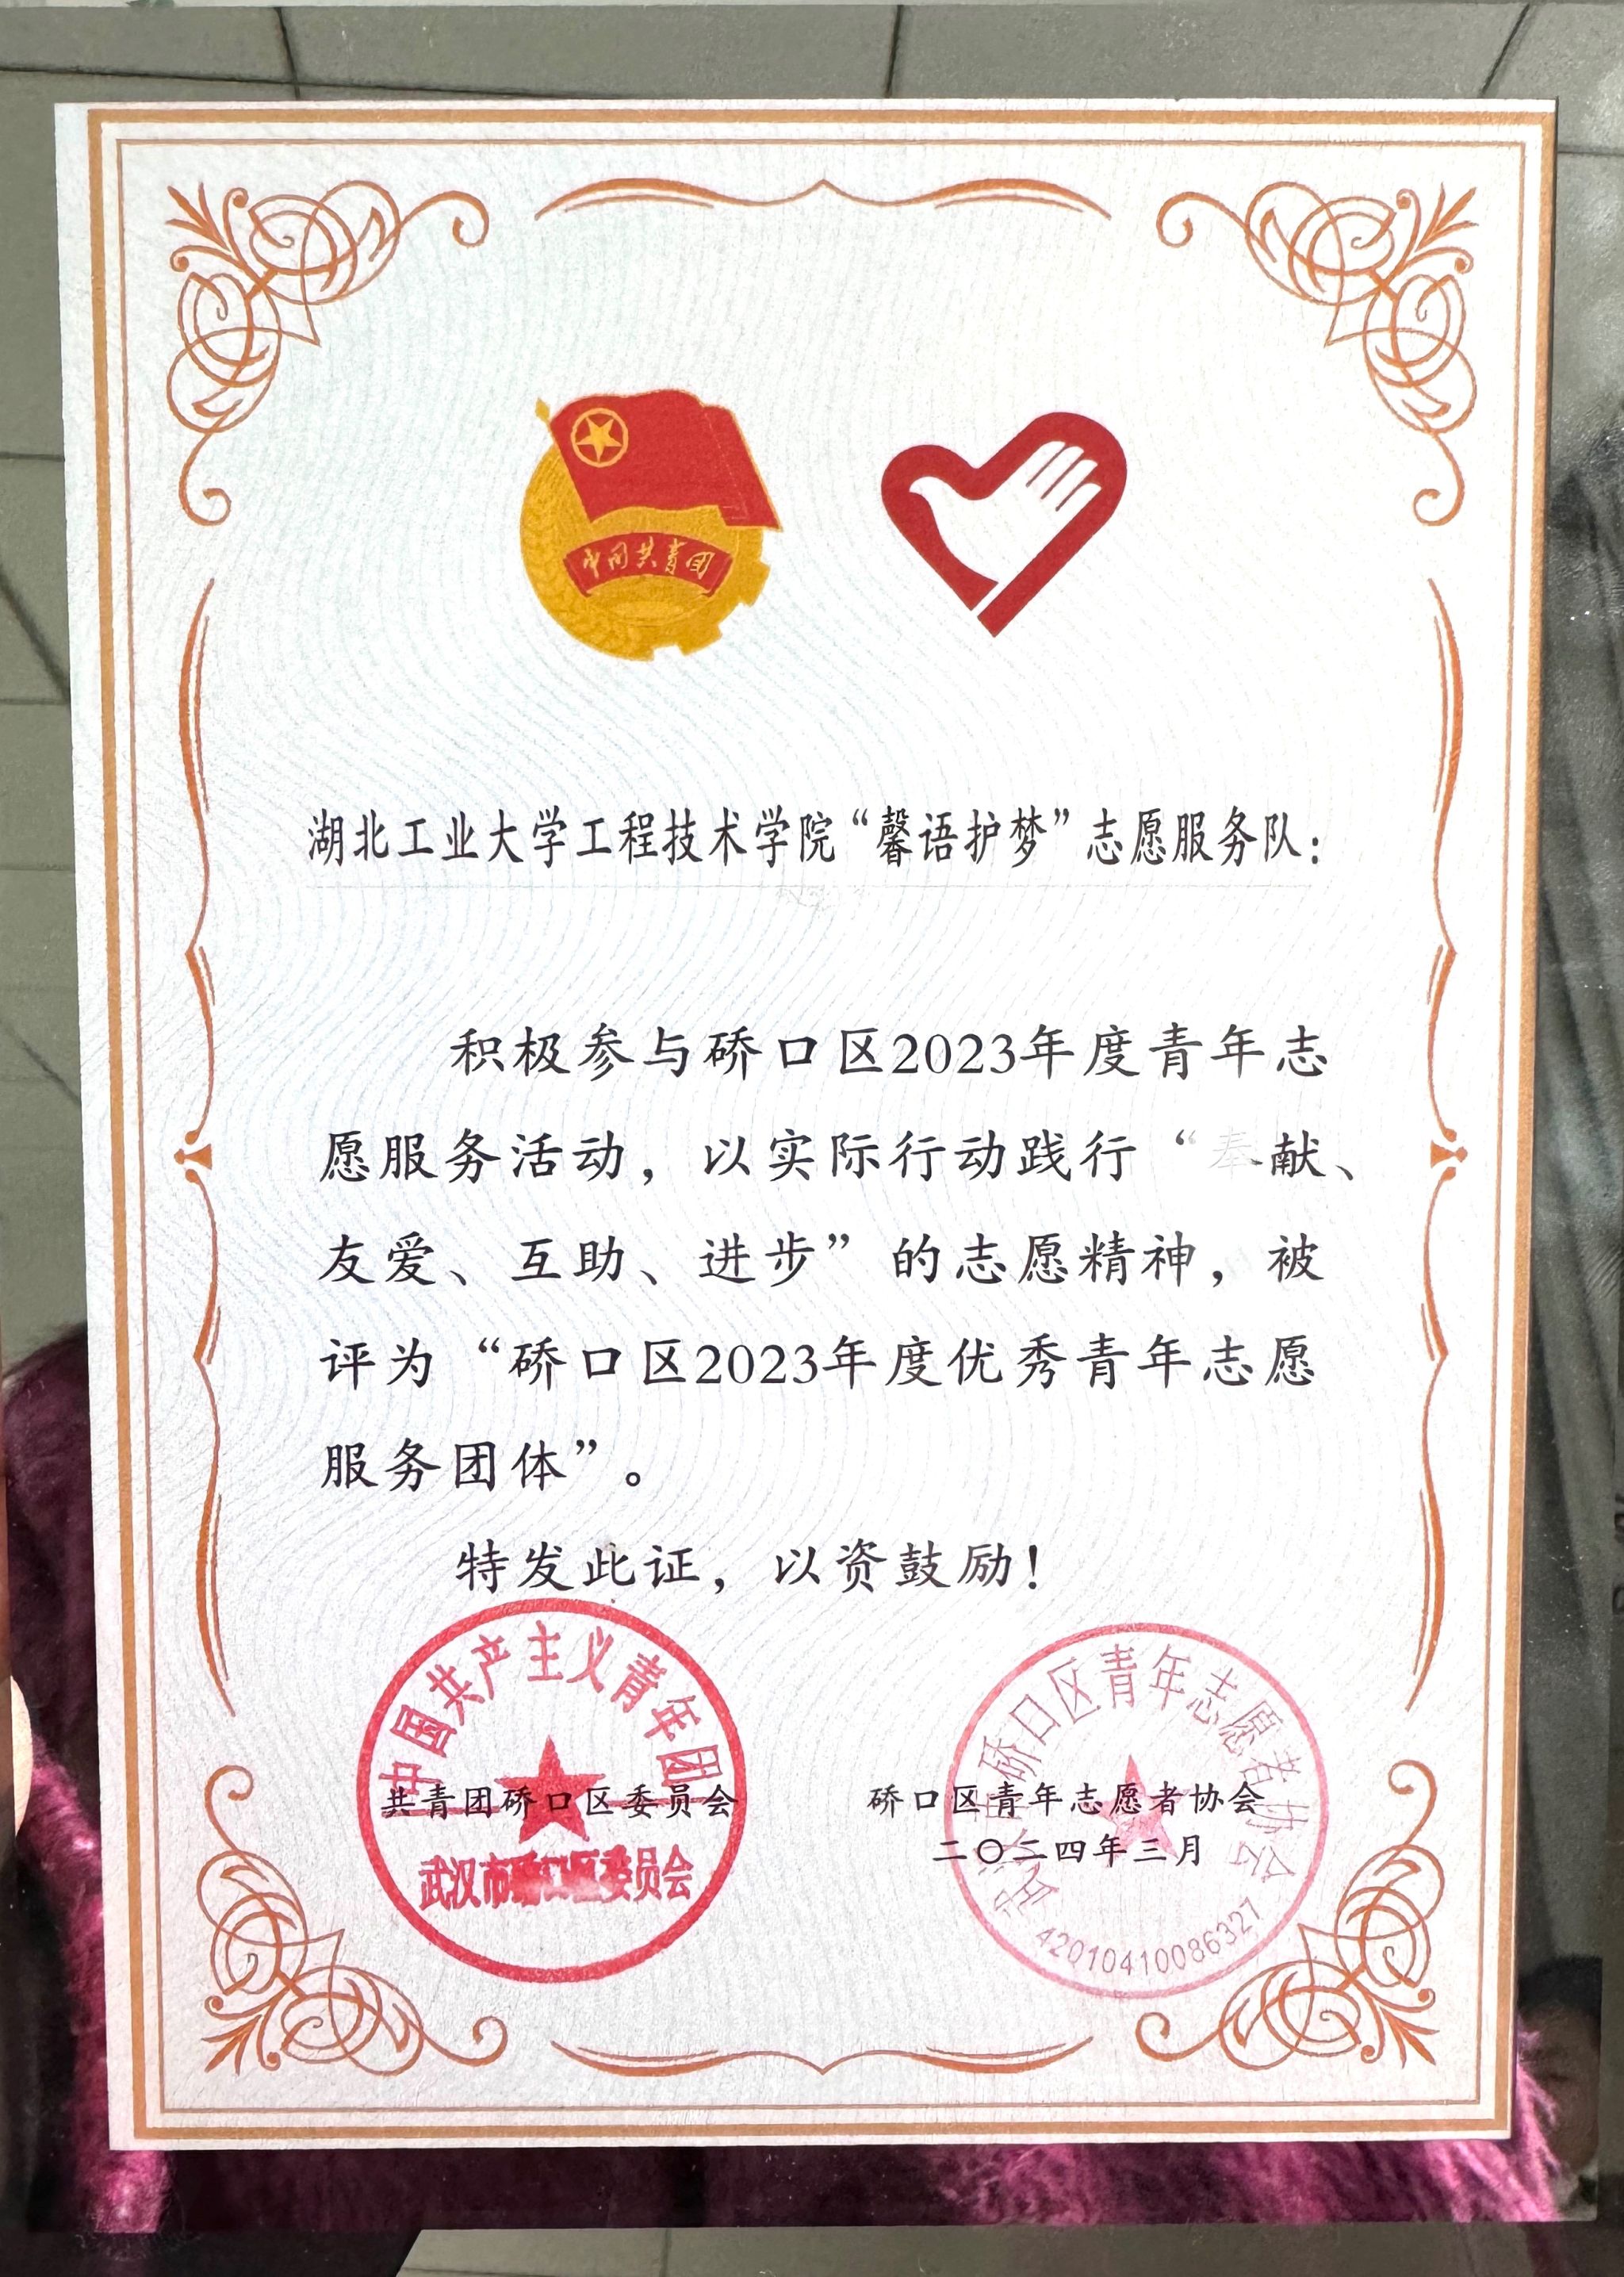 中国共青团
湖北工业大学工程技术学院“馨语护梦”志愿服务队：
积极参与硚口区2023年度青年志
愿服务活动，以实际行动践行“奉献、
友爱、互助、进步”的志愿精神，被
评为“硚口区2023年度优秀青年志愿
服务团体”。
特发此证，以资鼓励！
中国共产主义青年团
共青团硚口区委员会
武汉市硚口区委员会
武汉市硚口区青年志愿者协会
硚口区青年志愿者协会
二〇二四年三月
42010410086327